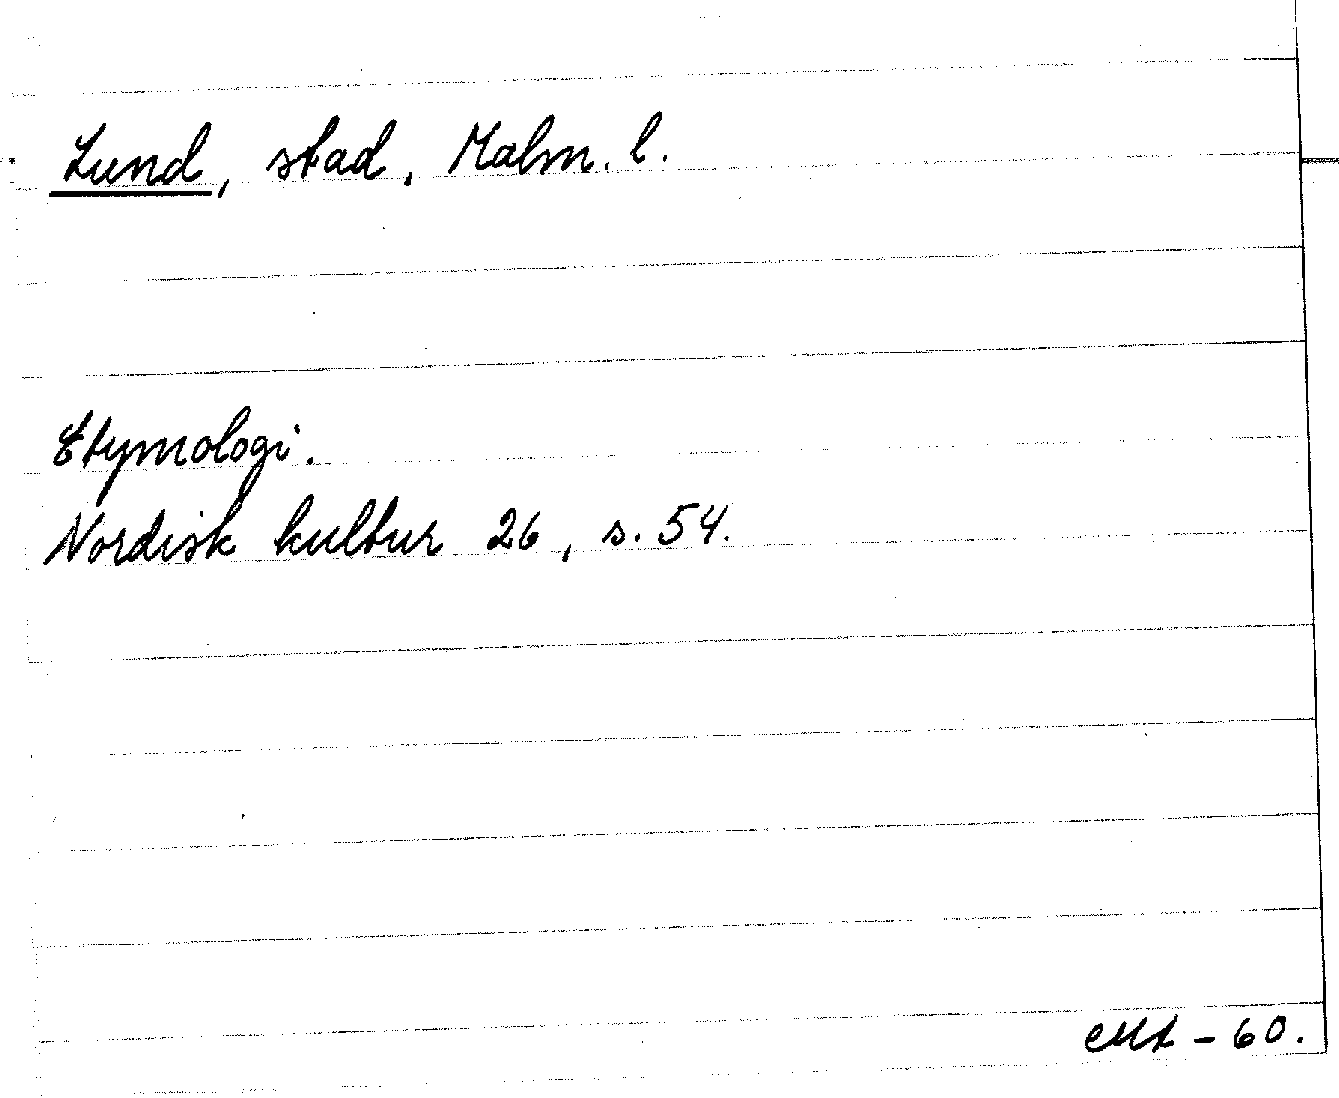 Lund, stad, Malm. l.
Etymologi.
Nordisk kultur 26, s. 54.
- 60.